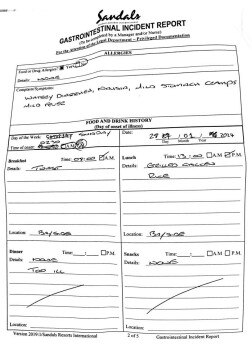 Sandals
GASTROINTESTINAL INCIDENT REPORT
(To be completed by a Manager and/or Nurse)
For the attention of the Legal Department – Privileged Documentation
ALLERGIES
Food or Drug Allergies?
Details: NONE
Complaint/Symptoms:
WATERY DIARRHEA, NAUSEA, AND STOMACH CRAMPS
FOOD AND DRINK HISTORY
(Day of onset of illness)
Day of the Week: SUNDAY
Date: 01 2024
Day Month Year
Time of onset: 0230
Breakfast Time: 08:00 A.M.
Details: TOAST
Location: BAYSIDE
Lunch Time: 13:00 A.M P.M.
Details: GRILLED CHICKEN
RICE
Location: BAYSIDE
Dinner Time: P.M.
Details: NONE
TOO ILL
Location:
Snacks Time: A.M P.M.
Details: NONE
Location:
Version 2019-1/Sandals Resorts International
2 of 5
Gastrointestinal Incident Report